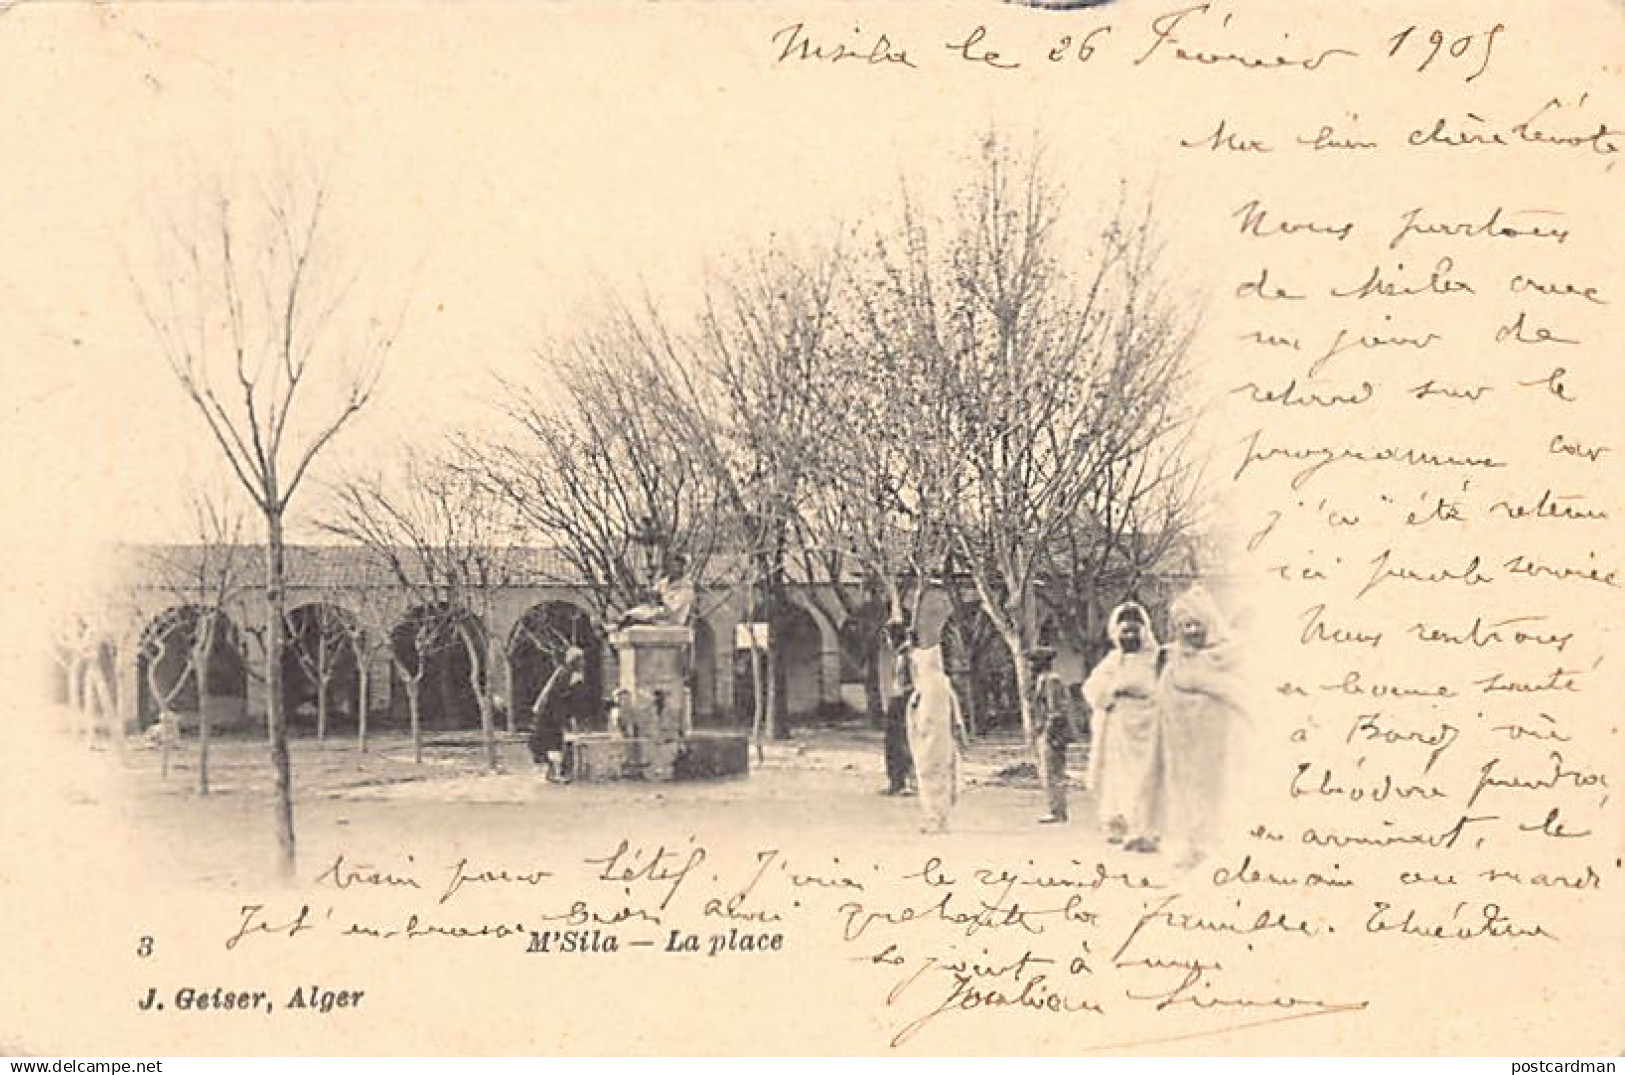 Msila le 26 Février 1905
Ma bien chère
Nous partons
de Msila avec
un jour de
retard sur le
programme car
j'ai été retenu
ici par le service
Nous rentrons
en bonne santé
à Bordj où
Théodore prendra,
en arrivant, le
train pour Sétif. J'irai le rejoindre demain ou mardi
Je t'embrasse bien ainsi que toute la famille.
se joint à moi
3
M'Sila — La place
J. Geiser, Alger
postcardman